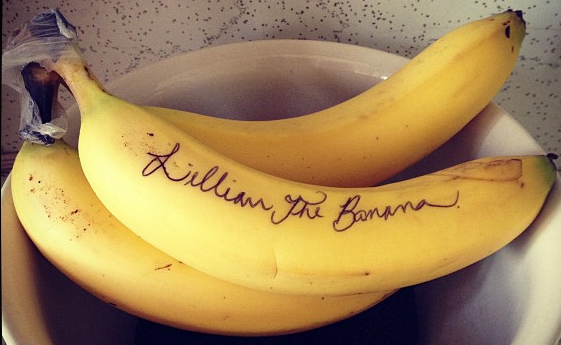 Lillian The Banana.